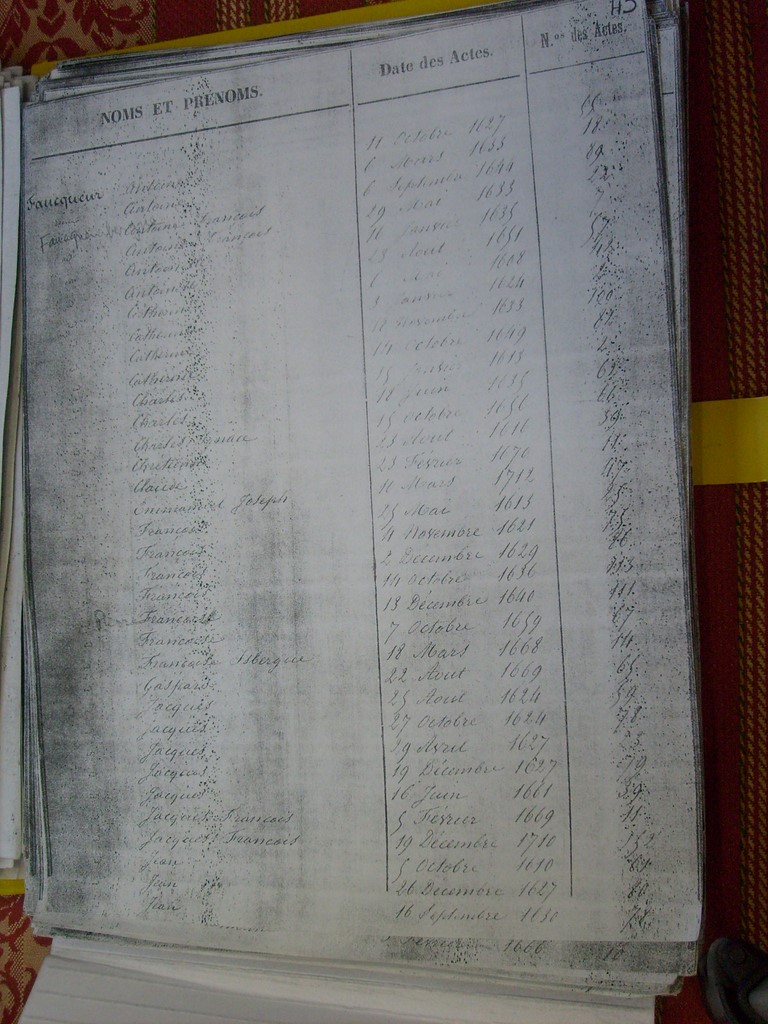 43
NOMS ET PRÉNOMS. Date des Actes. N.os des Actes.
Faucqueur Antoine 11 Octobre 1627 66
Antoine 6 Mars 1633 18
Antoine François 6 Septembre 1644 89
Antoine François 29 Mai 1633 22
Antoine 16 Janvier 1635 7
Antoine 23 Aout 1651 57
Catherine 6 Mai 1608
Catherine 3 Janvier 1624
Catherine 12 Novembre 1633 100
Catherine 14 Octobre 1649 82
Charles 15 Janvier 1613 2
Charles 18 Juin 1635 62
Charles Ignace 15 Octobre 1656 66
Chretienne 23 Aout 1616 39
Claude 23 Février 1670 11
Emmanuel Joseph 11 Mars 1712 97
François 25 Mai 1613 25
François 4 Novembre 1621 75
François 2 Decembre 1629 86
François 14 Octobre 1636 113
Françoise 13 Décembre 1640 111
Françoise 7 Octobre 1659 67
Françoise Isbergue 18 Mars 1668 14
Gaspard 22 Aout 1669 65
Jacques 25 Aout 1624 59
Jacques 27 Octobre 1624 78
Jacques 29 Avril 1627 33
Jacques 19 Décembre 1627 79
Jacques 16 Juin 1661 39
Jacques François 5 Février 1669 11
Jacques François 19 Décembre 1710 152
Jean 5 Octobre 1610 64
Jean 26 Decembre 1627 80
Jean 16 Septembre 1630
1666 10